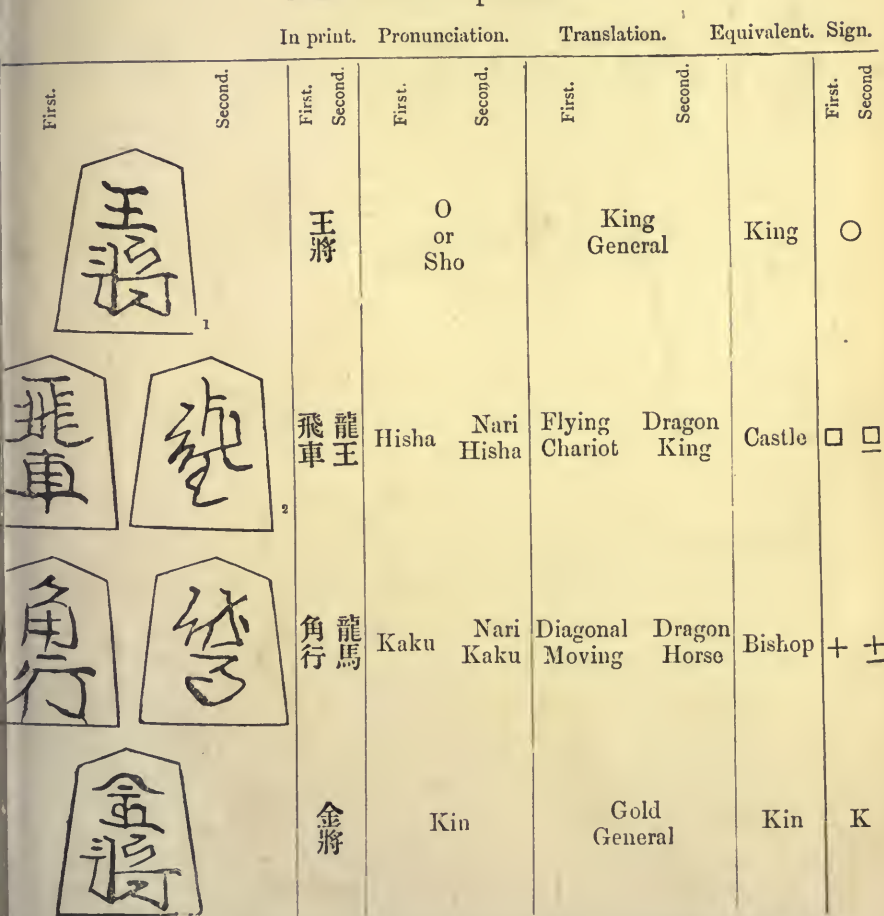 In print. Pronunciation. Translation. Equivalent. Sign.
First. Second. First. Second. First. Second. First. Second. First. Second
王將 1 王將 O or Sho King General King ○
飛車 龍王 2 飛車 龍王 Hisha Nari Hisha Flying Chariot Dragon King Castle □ □
角行 龍馬 角行 龍馬 Kaku Nari Kaku Diagonal Moving Dragon Horse Bishop + +
金將 金將 Kin Gold General Kin K